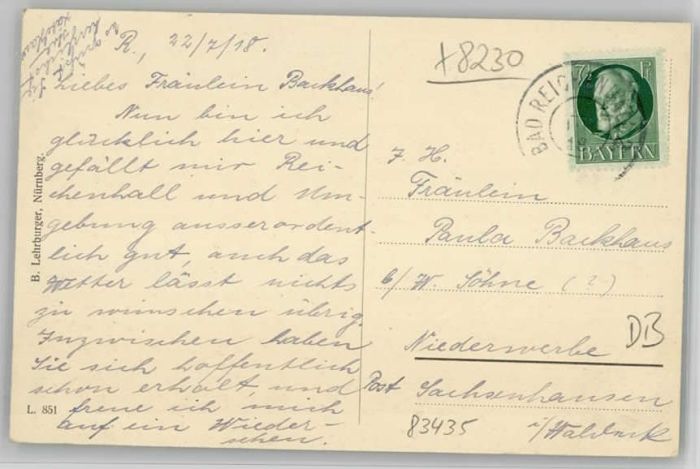 R., 22/7/18.
Liebes Fräulein Backhaus!
Nun bin ich
glücklich hier und
gefällt mir Rei-
chenhall und Um-
gebung ausserordent-
lich gut, auch das
Wetter lässt nichts
zu wünschen übrig.
Inzwischen haben
Sie sich hoffentlich
schon erholt, und
freue ich mich
auf ein Wieder-
sehen.
B. Lehrburger, Nürnberg.
L. 851
+8230
BAD REIC
7½
BAYERN
F. H.
Fräulein
Paula Backhaus
b/W. Söhne (?)
Niederwerbe
DB
Post Sachsenhausen
i/Waldeck
83435